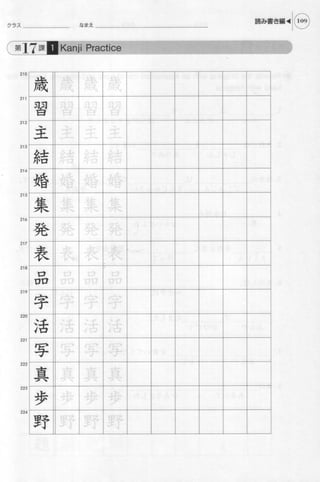 クラス なまえ 読み書き編 ◀ 109
第17課 1 Kanji Practice
210 歳 歳 歳 歳
211 習 習 習 習
212 主 主 主 主
213 結 結 結 結
214 婚 婚 婚 婚
215 集 集 集 集
216 発 発 発 発
217 表 表 表 表
218 品 品 品 品
219 字 字 字 字
220 活 活 活 活
221 写 写 写 写
222 真 真 真 真
223 歩 歩 歩 歩
224 野 野 野 野